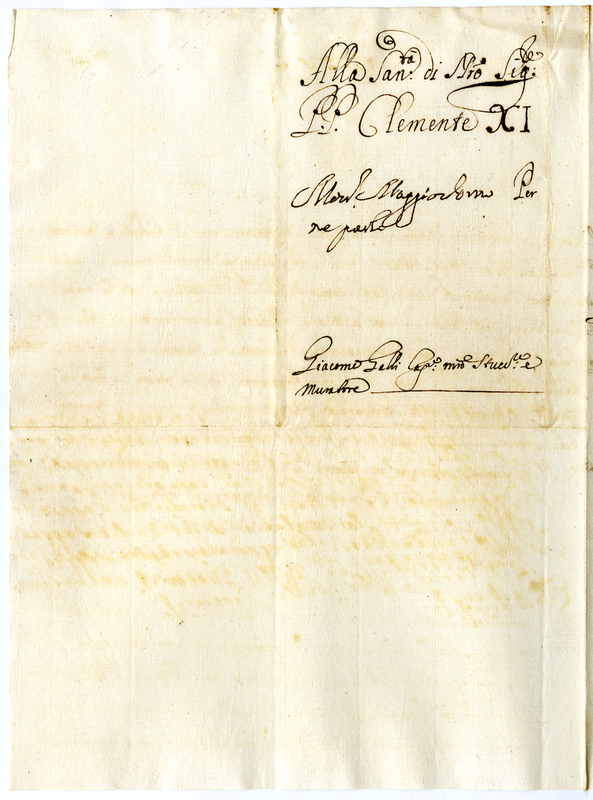 Alla San.ta di Nro Sig.re
P.P. Clemente XI
Mons.r Maggiordomo Per
ne parli
Giacomo Galli Cap.o mro Stucc.re e
Muratore